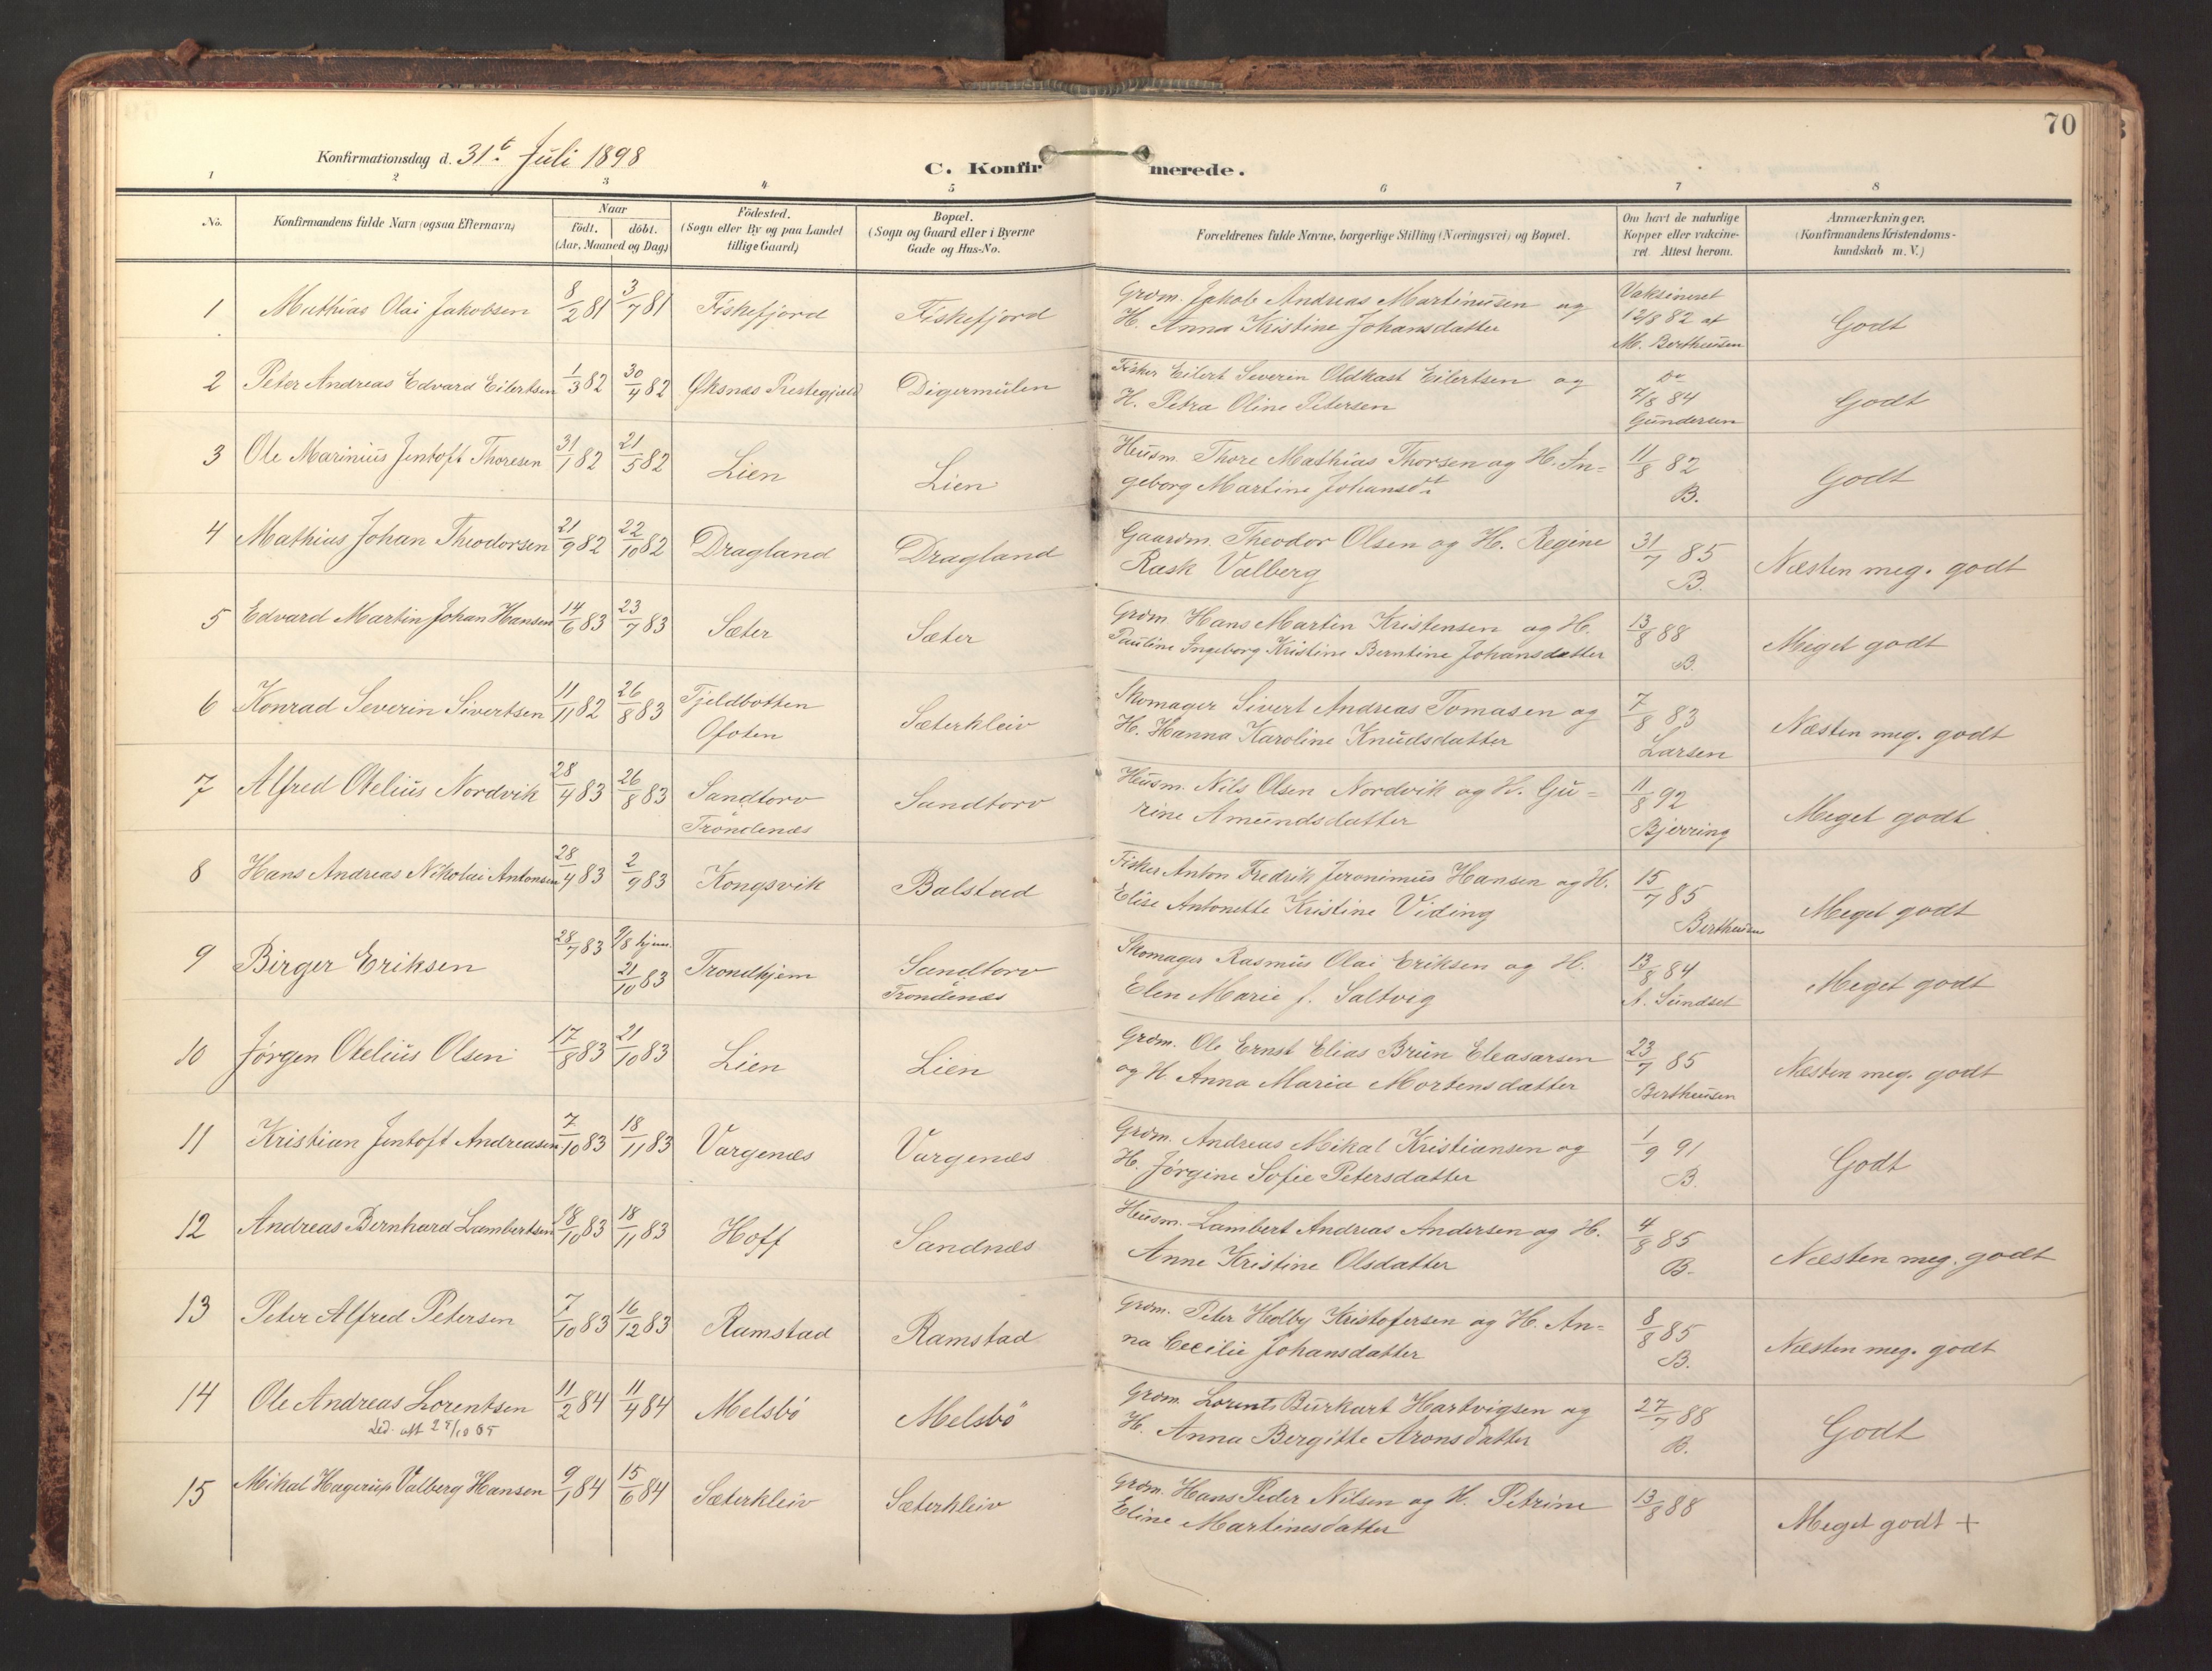 70
Konfirmationsdag d. 31t Juli 1898
C. Konfirmerede.
1 2 3 4 5 6 7 8
No.
Konfirmandens fulde Navn (ogsaa Efternavn)
Naar
födt. döbt.
(Aar, Maaned og Dag)
Födested.
(Sogn eller By og paa Landet
tillige Gaard)
Bopæl.
(Sogn og Gaard eller i Byerne
Gade og Hus-No.
Forældrenes fulde Navne, borgerlige Stilling (Næringsvei) og Bopæl.
Om havt de naturlige
Kopper eller vakcine-
ret. Attest herom.
Anmærkninger.
(Konfirmandens Kristendoms-
kundskab m. V.)
1 Mathias Olai Jakobsen 8/2 81 3/7 81 Fiskefjord Fiskefjord
Grdm. Jakob Andreas Martinusen og
H. Anna Kristine Johansdatter
Vaksineret
12/8 82 af
M. Bertheusen
Godt
2 Peter Andreas Edvard Eilertsen 1/3 82 30/4 82 Øksnæs Prestegjæld Digermulen
Fisker Eilert Severin Oldkast Eilertsen og
H. Petra Oline Petersen
Do
7/8 84
Gundersen
Godt
3 Ole Marinius Jentoft Thoresen 31/1 82 21/5 82 Lien Lien
Husm. Thore Mathias Thorsen og H. In=
geborg Martine Johansdt
11/8 82
B.
Godt
4 Mathias Johan Theodorsen 21/9 82 22/10 82 Dragland Dragland
Gaardm. Theodor Olsen og H. Regine
Rask Valberg
31/7 85
B.
Næsten meg. godt
5 Edvard Martin Johan Hansen 14/6 83 23/7 83 Sæter Sæter
Grdm. Hans Martin Kristensen og H.
Pauline Ingeborg Kristine Berntine Johansdatter
13/8 88
B.
Meget godt
6 Konrad Severin Sivertsen 11/11 82 26/8 83 Fjeldbotten
Ofoten
Sæterkleiv
Skomager Sivert Andreas Tomasen og
H. Hanna Karoline Knudsdatter
7/8 83
Larsen
Næsten meg. godt
7 Alfred Otelius Nordvik 28/4 83 26/8 83 Sandtorv
Trondenæs
Sandtorv
Husm. Nils Olsen Nordvik og H. Gu=
rine Amundsdatter
11/8 92
Bjerring
Meget godt
8 Hans Andreas Nikolai Antonsen 28/4 83 2/9 83 Kongsvik Balstad
Fisker Anton Fredrik Jeronimus Hansen og H.
Elise Antonette Kristine Viding
15/7 85
Bertheusen
Meget godt
9 Birger Eriksen 28/7 83 9/8 hjem.
21/10 83
Trondhjem
Sandtorv
Trondenæs
Skomager Rasmus Olai Eriksen og H.
Elen Marie f. Saltvig
13/8 84
A. Sundset
Meget godt
10 Jørgen Otelius Olsen 17/8 83 21/10 83 Lien Lien
Grdm. Ole Ernst Elias Brun Eleasarsen
og H. Anna Maria Mortensdatter
23/7 85
Bertheusen
Næsten meg. godt
11 Kristian Jentoft Andreasen 7/10 83 18/11 83 Vargenæs Vargenæs
Grdm. Andreas Mikal Kristiansen og
H. Jørgine Sofie Petersdatter
1/9 91
B.
Godt
12 Andreas Bernhard Lambertsen 18/10 83 18/11 83 Hoff Sandnæs
Husm. Lambert Andreas Andersen og H.
Anne Kristine Olsdatter
4/8 85
B.
Næsten meg. godt
13 Peter Alfred Petersen 7/10 83 16/12 83 Ramstad Ramstad
Grdm. Peter Holby Kristofersen og H. An=
na Cecilie Johansdatter
8/8 85
B.
Næsten meg. godt
14 Ole Andreas Lorentsen 11/2 84 11/4 84 Melsbö Melsbö
Led. att
Grdm. Lorents Burkart Hartvigsen og
H. Anna Bergitte Aronsdatter
27/7 88
B.
Godt
15 Mikal Hagerup Valberg Hansen 9/1 84 15/6 84 Sæterkleiv Sæterkleiv
Grdm. Hans Peder Nilsen og H. Petrine
Eline Martinesdatter
13/8 88
Meget godt +